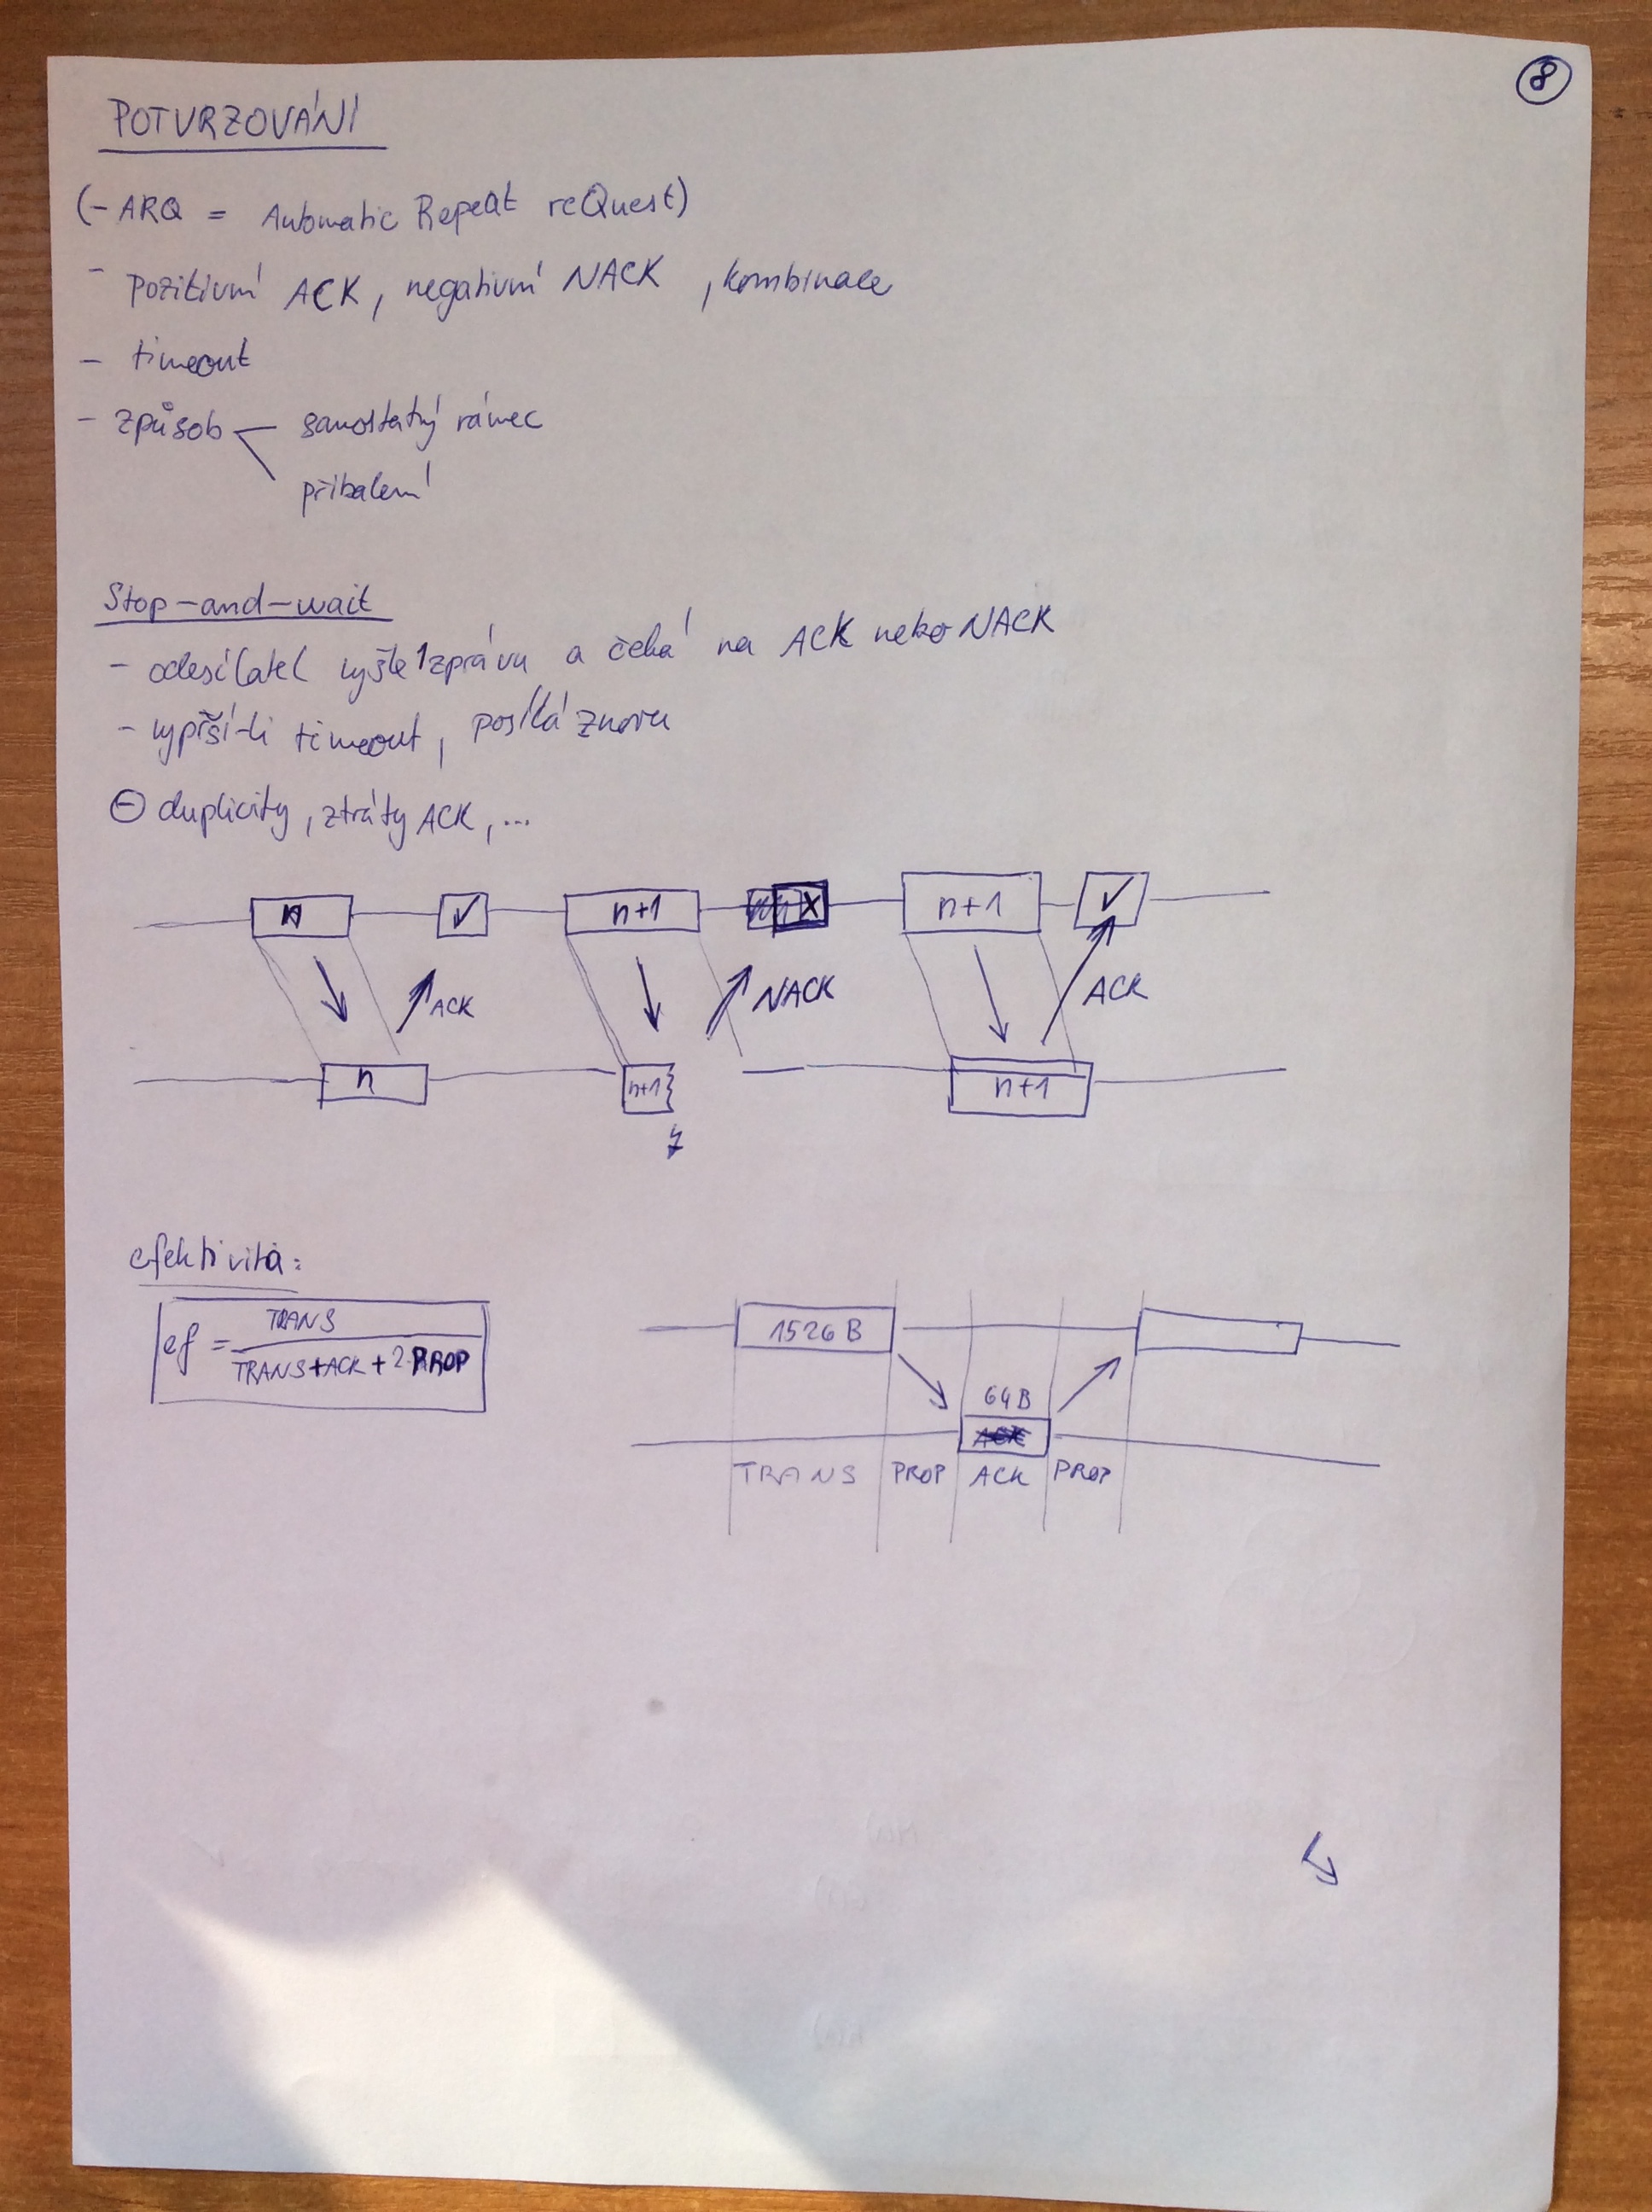 8
POTVRZOVÁNÍ
(- ARQ = Automatic Repeat reQuest)
- pozitivní ACK, negativní NACK, kombinace
- timeout
- způsob samostatný rámec
přibalení
Stop-and-wait
- odesílatel vyšle 1 zprávu a čeká na ACK nebo NACK
- vyprší-li timeout, posílá znovu
⊖ duplicity, ztráty ACK, ...
n ✓ n+1 X n+1 ✓
ACK NACK ACK
n n+1 n+1
efektivita:
ef = TRANS
TRANS+ACK+2·PROP
1526 B
64B
TRANS PROP ACK PROP